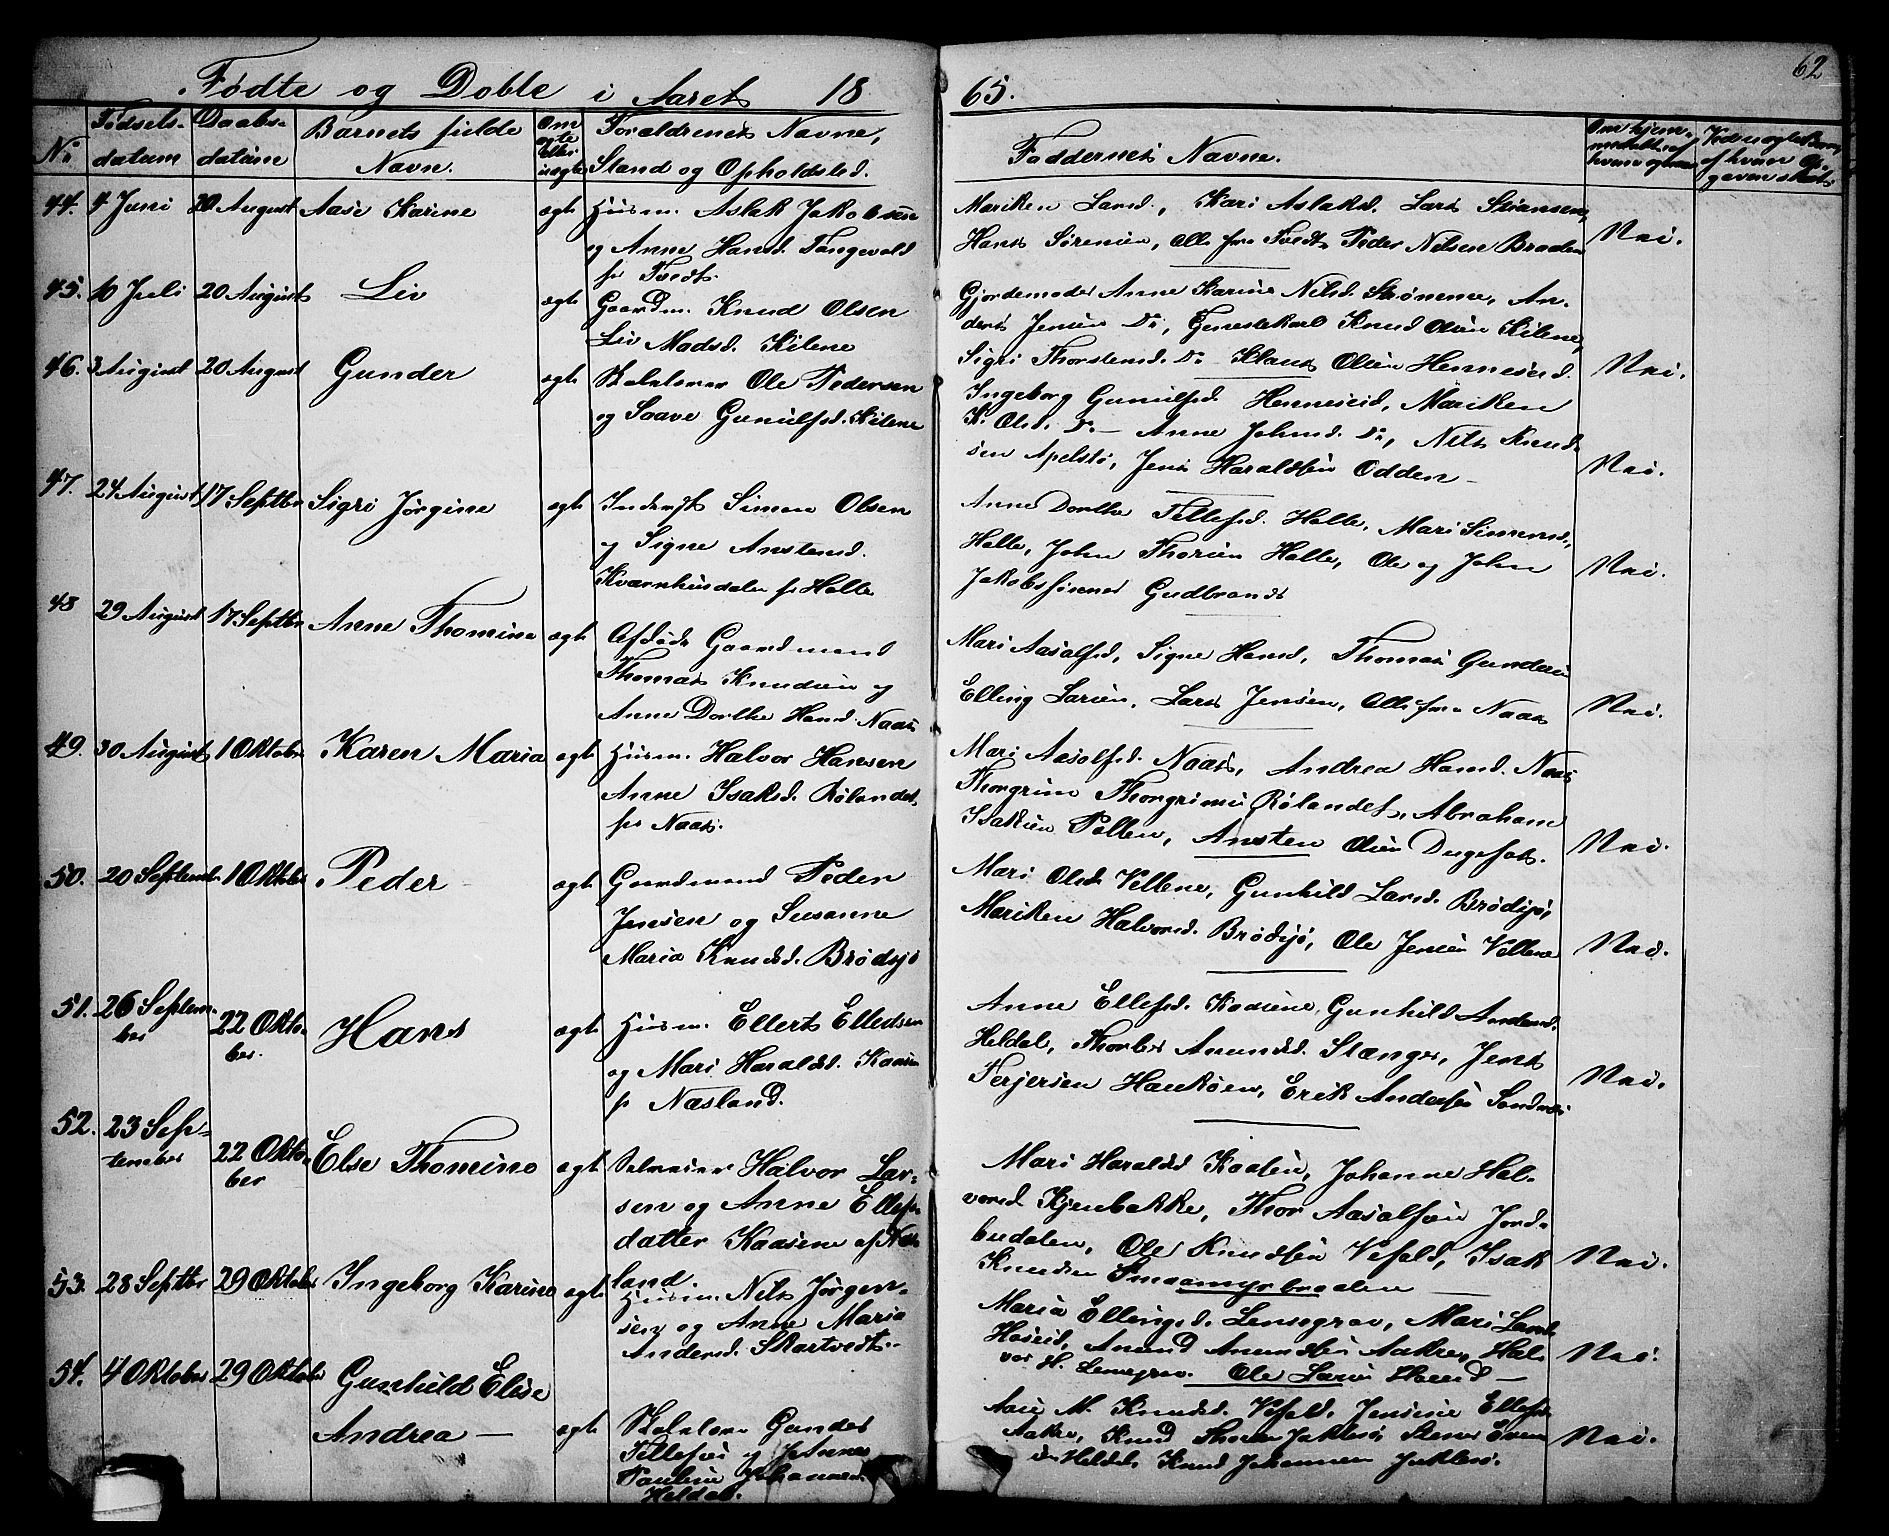 62
Fødte og Døbte i Aaret 18 65.
No Fødselsdatum Daabsdatum Barnets fulde Navn. Om ægte eller uægte Forældrenes Navne, Stand og Opholdsted. Faddernes Navne. Om hjemmedøbt, af hvem og
44. 4 Juni 20 August Aase Karine ægte Husm. Aslak Jakobsen
og Anne Hansd. Tangevald
fr Tvedt.
Mariken Larsd., Kari Aslaksd. Lars
Hans Sørensen, Alle fra Tvedt Peder Nilsen Braaten
Nei.
45. 10 Juli 20 August Liv ægte Gaardm. Knud Olsen
Liv Madsd. Kilene
Gjordemoder Anne Karine Nilsd. Strømene, An-
ders Jensen Do, Knud Olsen Kilene,
Sigri Thorstensd. Do Klaus Olsen Henneseid.
Nei.
46. 3 August 20 August Gunder ægte Skolelærer Ole Pedersen
og Saave Gunulfsd. Kilene
Ingeborg Gunulfsd. Henneseid, Mariken
K. Olsd. Do – Anne Johnsd. Do, Nils Knud-
sen Apelstø, Jens Haraldsen Odden –
Nei.
47. 24 August 17 Septbr Sigri Jørgine ægte Inderst Simon Olsen
og Signe Anstensd.
Kværnhusdalen fr Halle
Anne Dorthe Tellefsd. Halle, Mari Simonsd.,
Halle, John Thorsen Halle, Ole og John
Jakobssønner Gudbrands
Nei.
48 29 August 17 Septbr Anne Thomine ægte Afdøde Gaardmand
Thomas Knudsen og
Anne Dorthe Hansd. Naas
Mari Aasolfsd, Signe Hansd, Thomas Gundersen
Elling Larsen, Lars Jensen, Alle fra Naas
Nei.
49. 30 August 1 Oktober Karen Maria ægte Husm. Halvor Hansen
Anne Isaksd. Rølandet
fr Naas.
Mari Aasolfsd. Naas, Andrea Hansd. Naas
Thorgrim Thorgrimsen Rølandet, Abraham
Isaksen Pollen, Ansten Olsen
Nei.
50. 20 Septemb. 1 Oktober Peder ægte Gaardmand Peder
Jensen og Susanne
Maria Knudsd. Brødsjø
Mari Olsd Vellene, Gunhild Larsd. Brødsjø,
Mariken Halvorsd. Brødsjø, Ole Jensen Vellene
Nei.
51. 26 Septem-
ber 22 Okto-
ber. Hans ægte Husm. Ellert Ellefsen
og Mari Haraldsd. Kaasen
fr Næsland.
Anne Ellefsd. Kaasene, Gunhild Andersd.
Heldal, Thorbor Amundsd. Stænger, Jens
Terjersen Haukøen, Erik Andersen
Nei.
52. 23 Sep-
tember 22 Okto-
ber Else Thomine ægte Selveier Halvor Lar-
sen og Anne Ellefs-
datter Kaasene af Næs
land.
Mari Haraldsd Kaasen, Johanne Hal-
vorsd Kjenbakke, Thor Aasolfsen Jord-
budalen, Ole Knudsen Vefald, Isak
Knudsen Smaamyrbraaten –
Nei.
53. 28 Septbr 29 Oktober Ingeborg Karine ægte Husm. Nils Jørgen-
sen og Anne Maria
Andersd. Skartvedt.
Maria Ellingsd. Lensegrav, Mari Larsd.
Haseid, Amund Amundsen Aakre, Hal-
vor H. Lensegrav. Ole Larsen Haseid –
Nei.
54. 4 Oktober 29 Oktober Gunhild Elise
Andrea – ægte Skolelærer Gunder
Tellefsen og Johanne
Pauline Johannesd.
Heldal.
Aase M. Knudsd. Vefald, Jensine Ellefsd
Aakre, Knud Jaktesø, Stener Even-
sen Heldal, Knud Johannsen Jaktesø.
Nei.